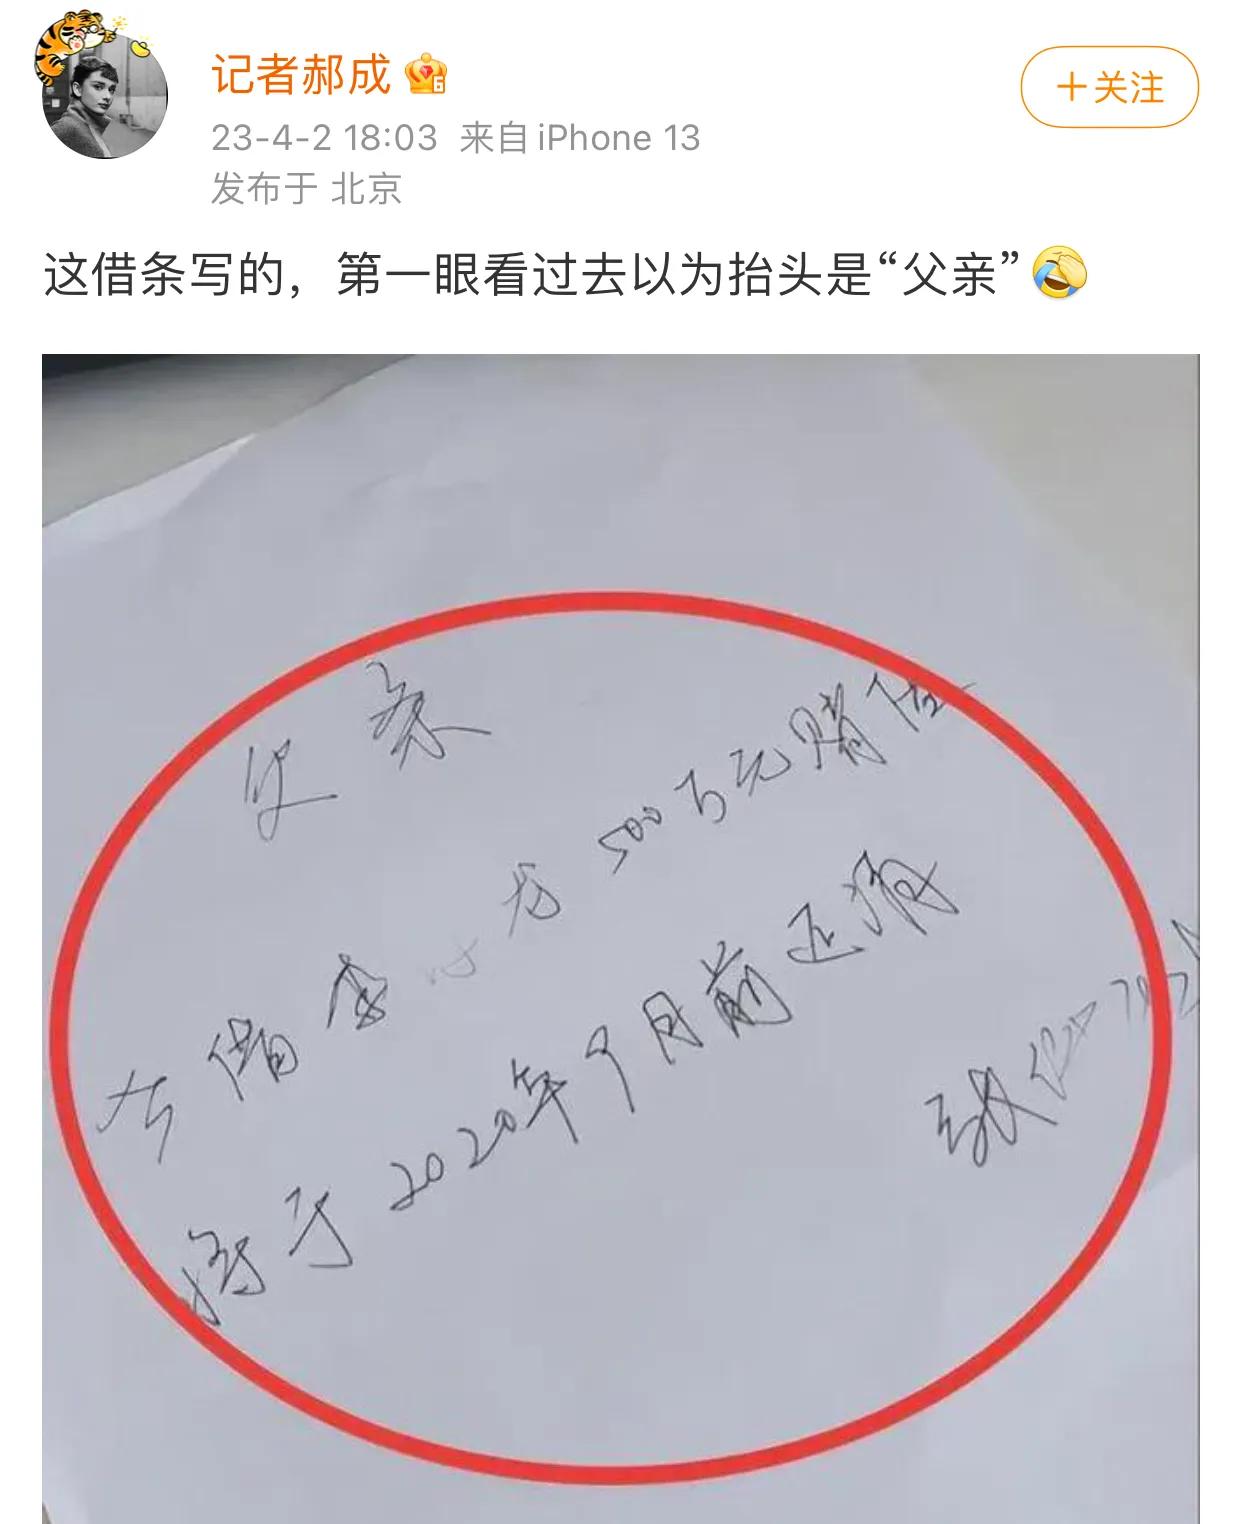 记者郝成
+关注
23-4-2 18:03 来自 iPhone 13
发布于 北京
这借条写的，第一眼看过去以为抬头是“父亲”
条
今借李 500万元赌债
将于2020年9月前还清